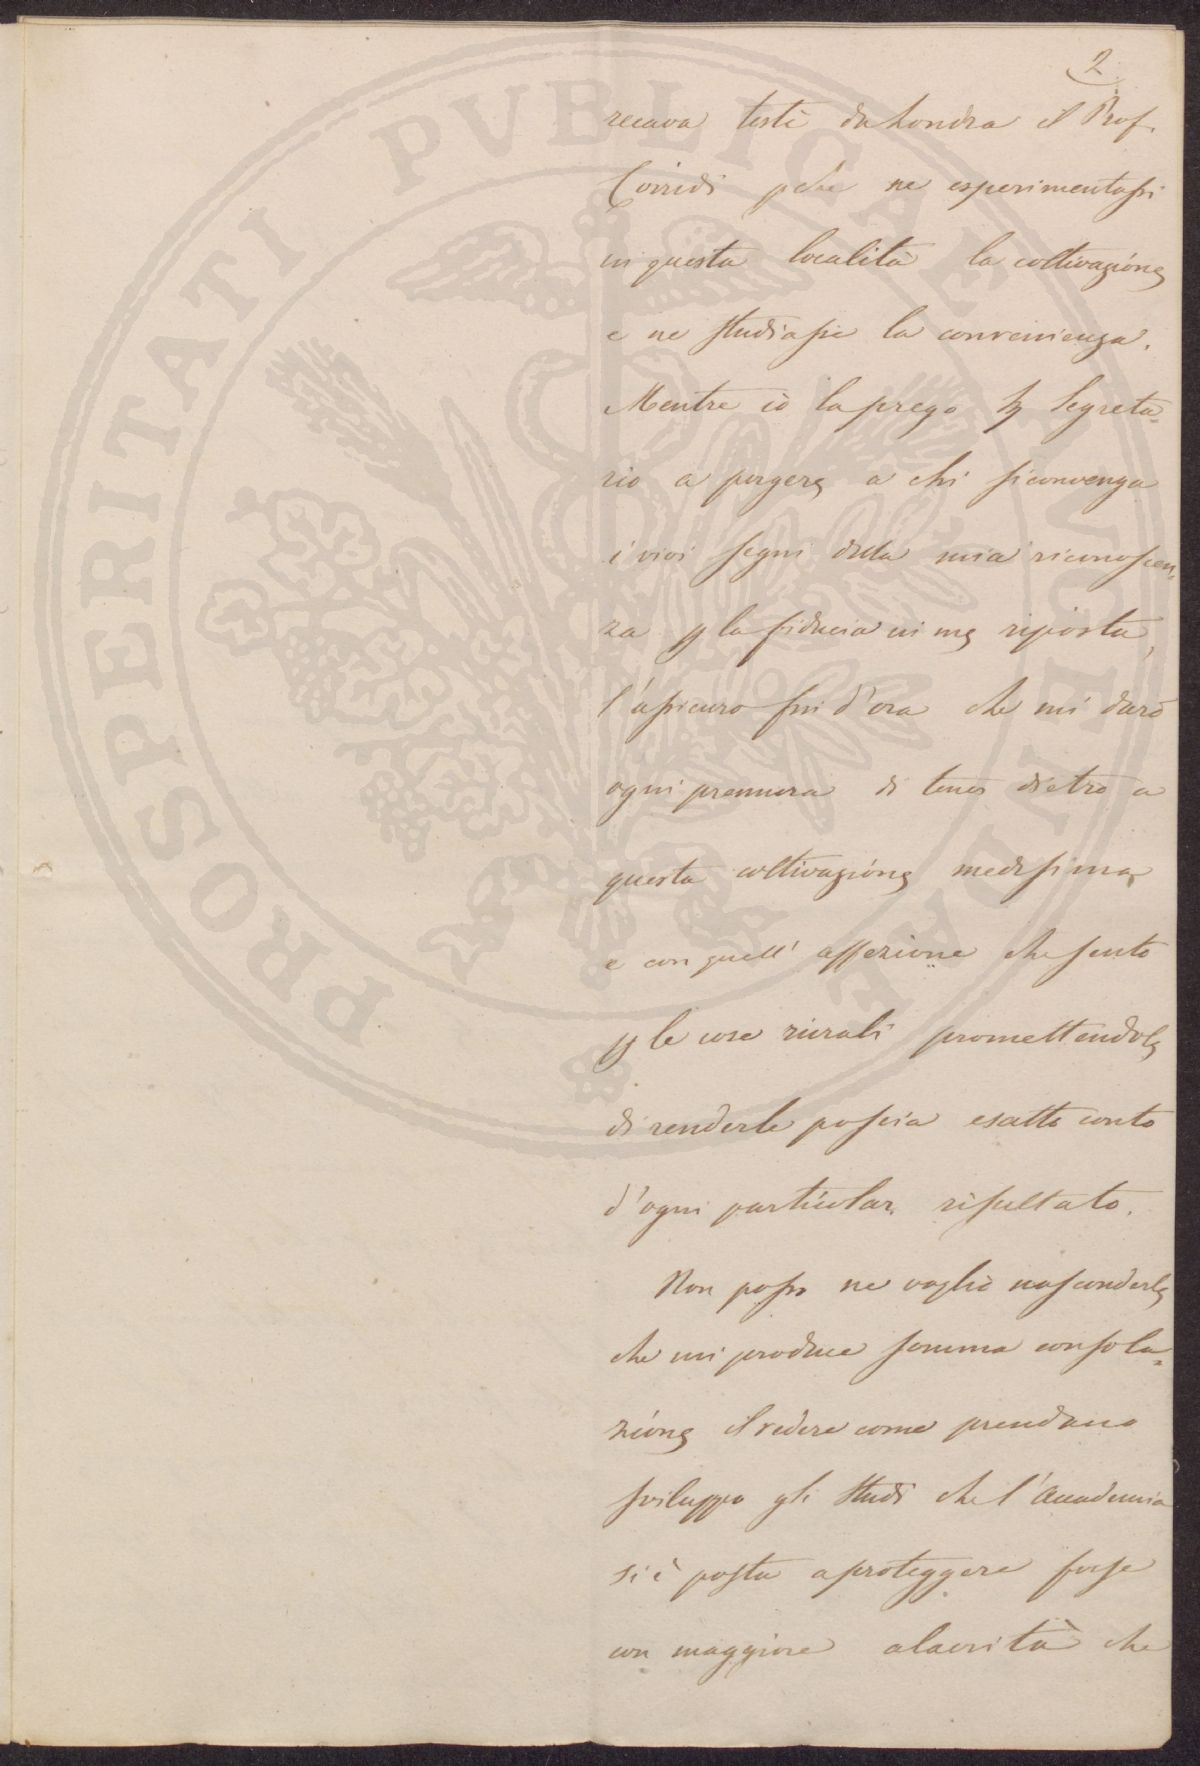 2
recava testè da Londra il Prof.
Corridi pche ne esperimentassi
in questa località la coltivazione
e ne studiassi la convenienza.
Mentre iò la prego Sig Segreta-
rio a porgere a chi si convenga
i vivi segni della mia riconoscen-
za p la fiducia in me riposta,
l'assicuro fin d'ora che mi darò
ogni premura di tener dietro a
questa coltivazione medesima
e con quell' affezione che sento
p le cose rurali promettendole
di renderle poscia esatto conto
d'ogni particolar risultato.
Non posso ne voglio nasconderle
che mi produce somma consola-
zione il vedere come prendano
sviluppo gli studi che l'Accademia
si è posta a proteggere forse
con maggiore alacrità che
PROSPERITATI PVBLICAE AVGENDAE